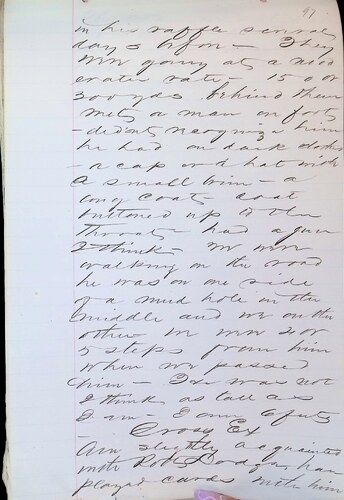 97
in his raffle several
days before — They
were going at a mod
erate rate — 150 or
300 yds behind them
met a man on foot
— didn't recognize him
he had on dark clothes
— a cap or hat with
a small brim — a
long coat — coat
buttoned up to the
throat — had a gun
I think — we were
walking on the road
he was on one side
of a mud hole in the
middle and we on the
other we were 4 or
5 steps from him
when we passed
him — He was not
I think as tall as
I am — I am 6 feet
— Cross Ex
Am slightly acquainted
with Robt Dodge, have
played cards with him